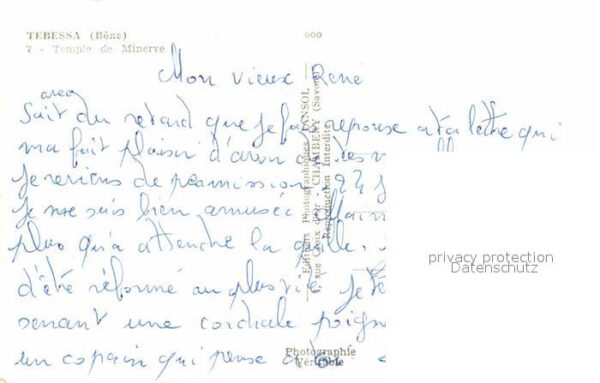 TEBESSA (Bône)
7 - Temple de Minerve
000
Mon vieux René
avec
du retard que je fais reponse a ta lettre qui
ma fait plaisir d'avoir de tes
Je reviens de permission 24 J
Je me suis bien amusée
plus qu'a attendre la quille.
d'été réformé au plus vite Je te
serrant une cordiale poign
un copain qui pense a toi
Editions Photographiques JANSOL
rue Croix d'or - CHAMBERY (Savoie)
Reproduction Interdite
Photographie
Véritable
privacy protection
Datenschutz